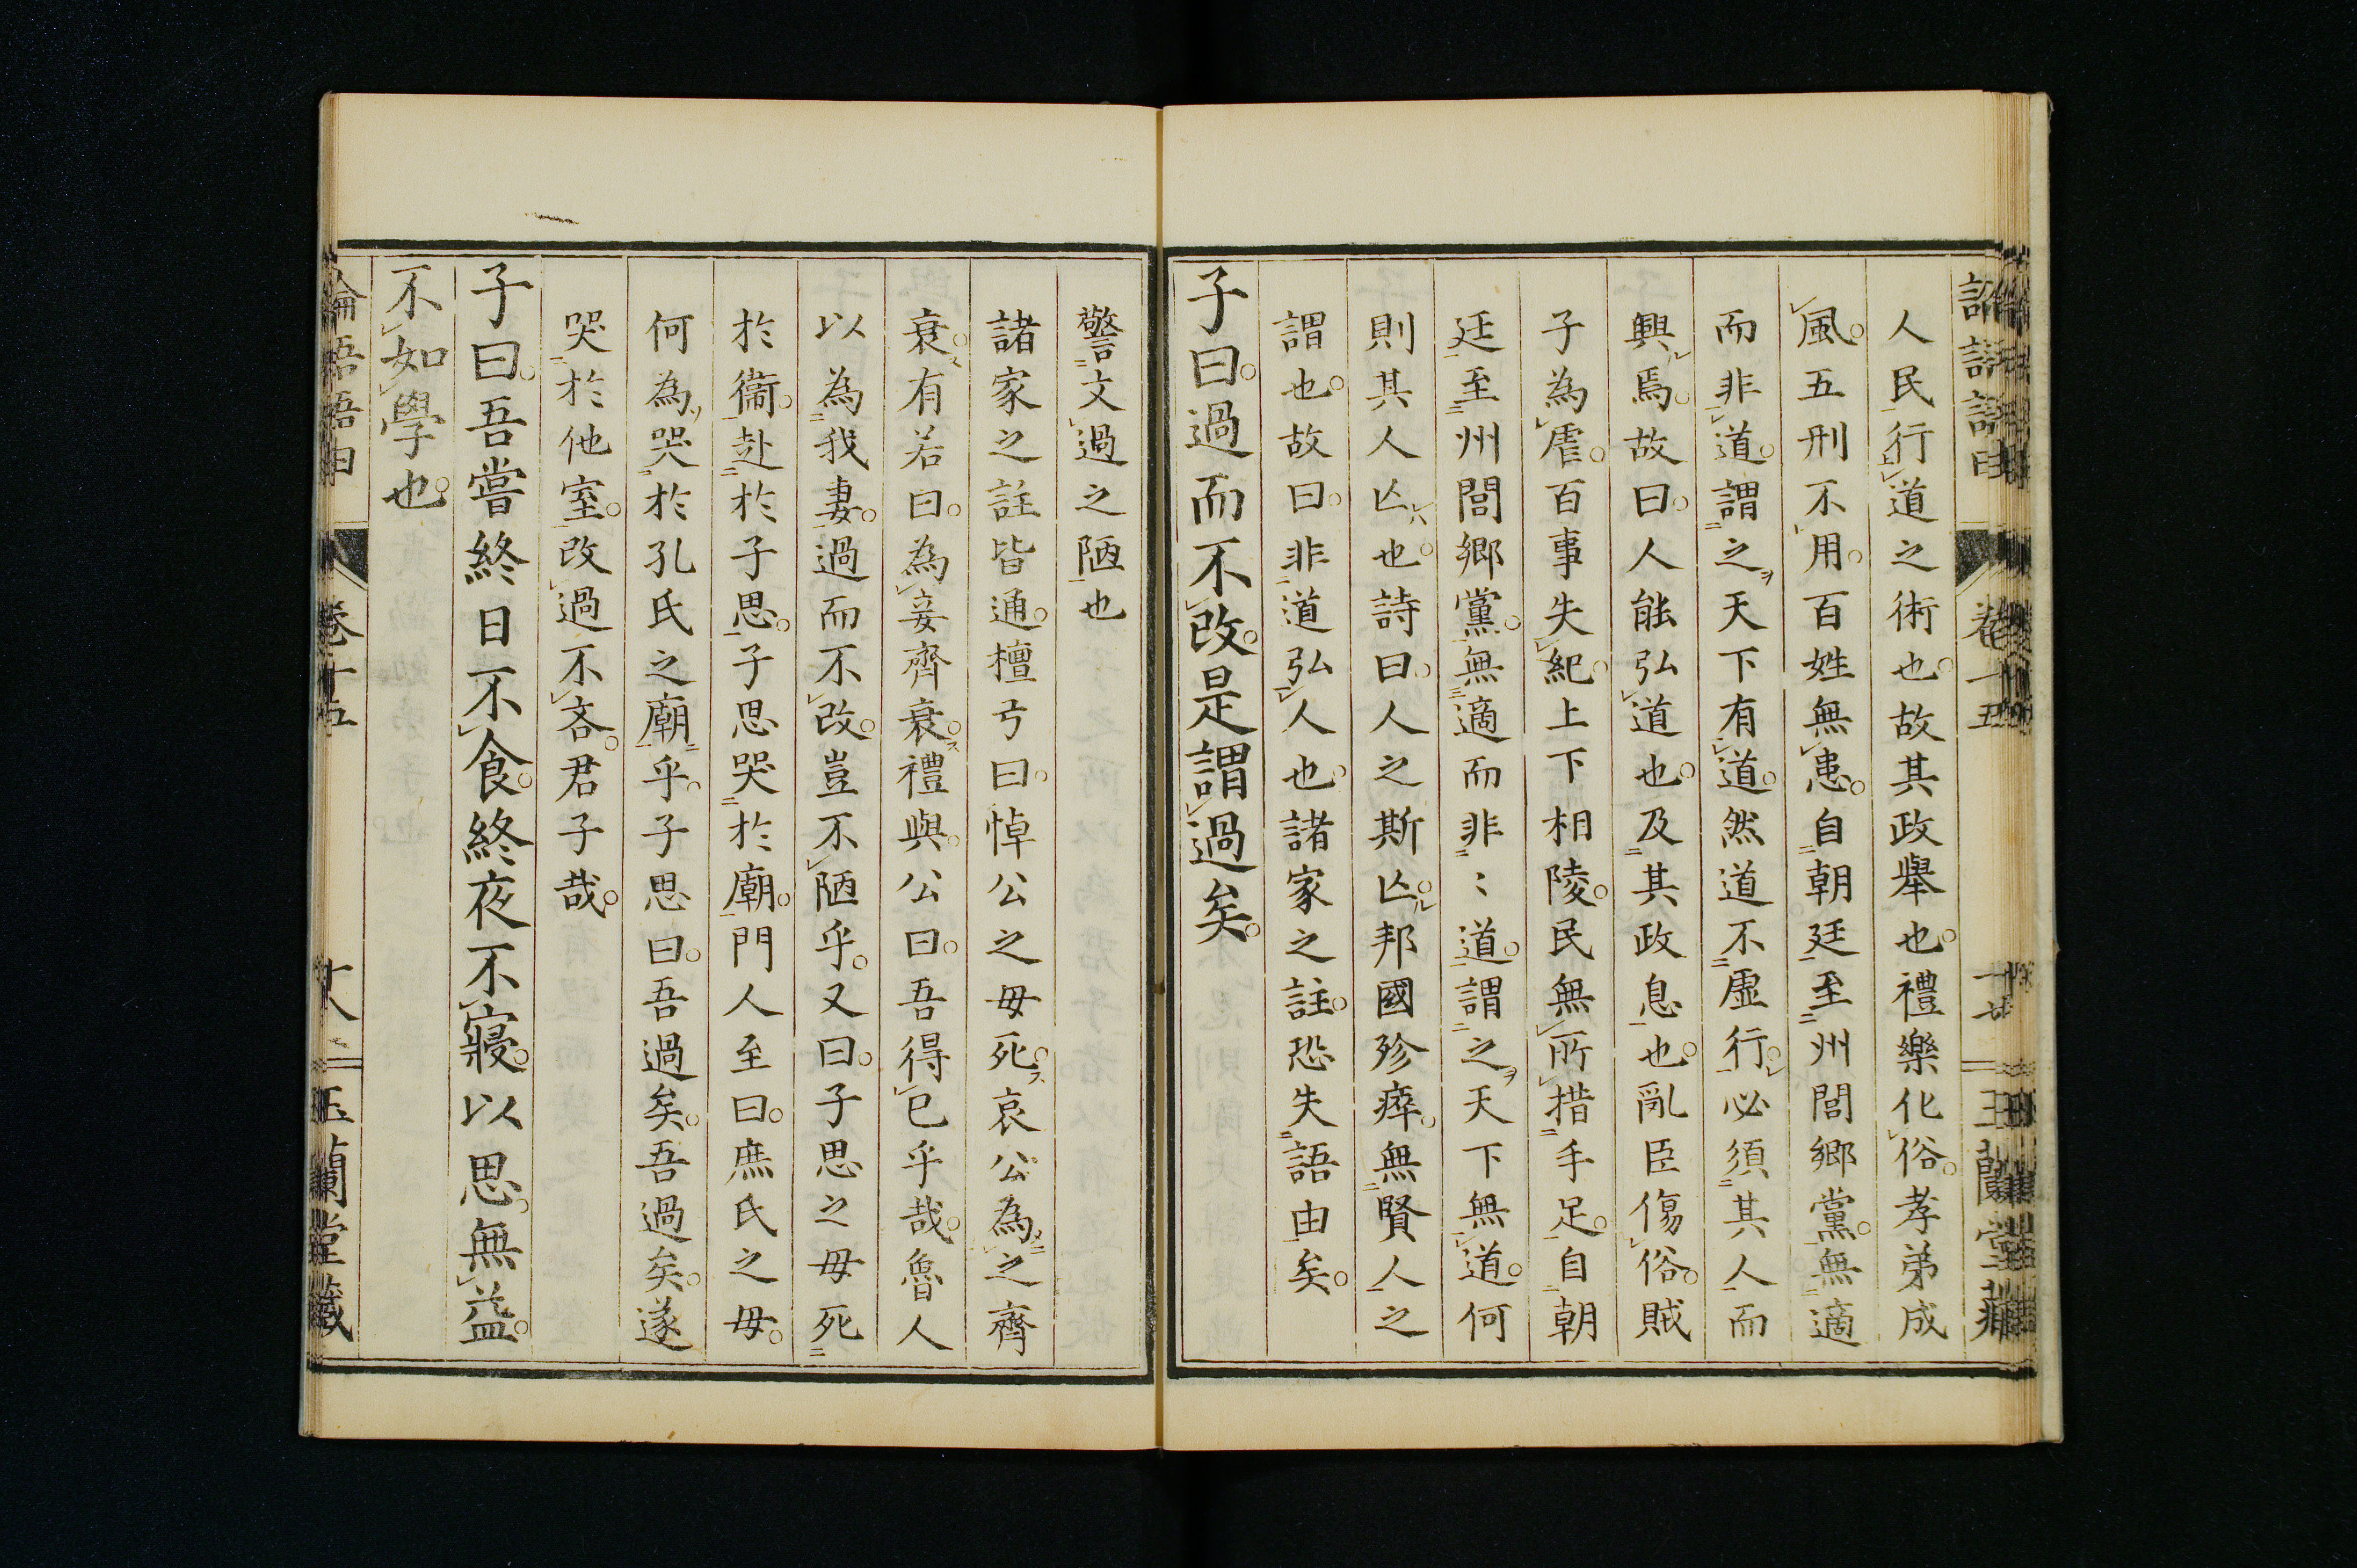 人民行道之術也故其政舉也禮樂化俗孝弟成
風五刑不用百姓無患自朝廷至州閭鄉黨無適
而非道謂之天下有道然道不虛行必須其人而
興焉故曰人能弘道也及其政息也亂臣傷俗賊
子為虐百事失紀上下相陵民無所措手足自朝
廷至州閭鄉黨無適而非〻道謂之天下無道何
則其人亾也詩曰人之斯亾邦國殄瘁無賢人之
謂也故曰非道弘人也諸家之註恐失語由矣
子曰過而不改是謂過矣
警文過之陋也
諸家之註皆通檀弓曰悼公之母死哀公為之齊
衰有若曰為妾齊衰禮與公曰吾得已乎哉魯人
以為我妻過而不改豈不陋乎又曰子思之母死
於衞赴於子思子思哭於廟門人至曰庶氏之母
何為哭於孔氏之廟乎子思曰吾過矣吾過矣遂
哭於他室改過不吝君子哉
子曰吾嘗終日不食終夜不寢以思無益
不如學也
論語語由 卷十五 十八 玉蘭堂藏